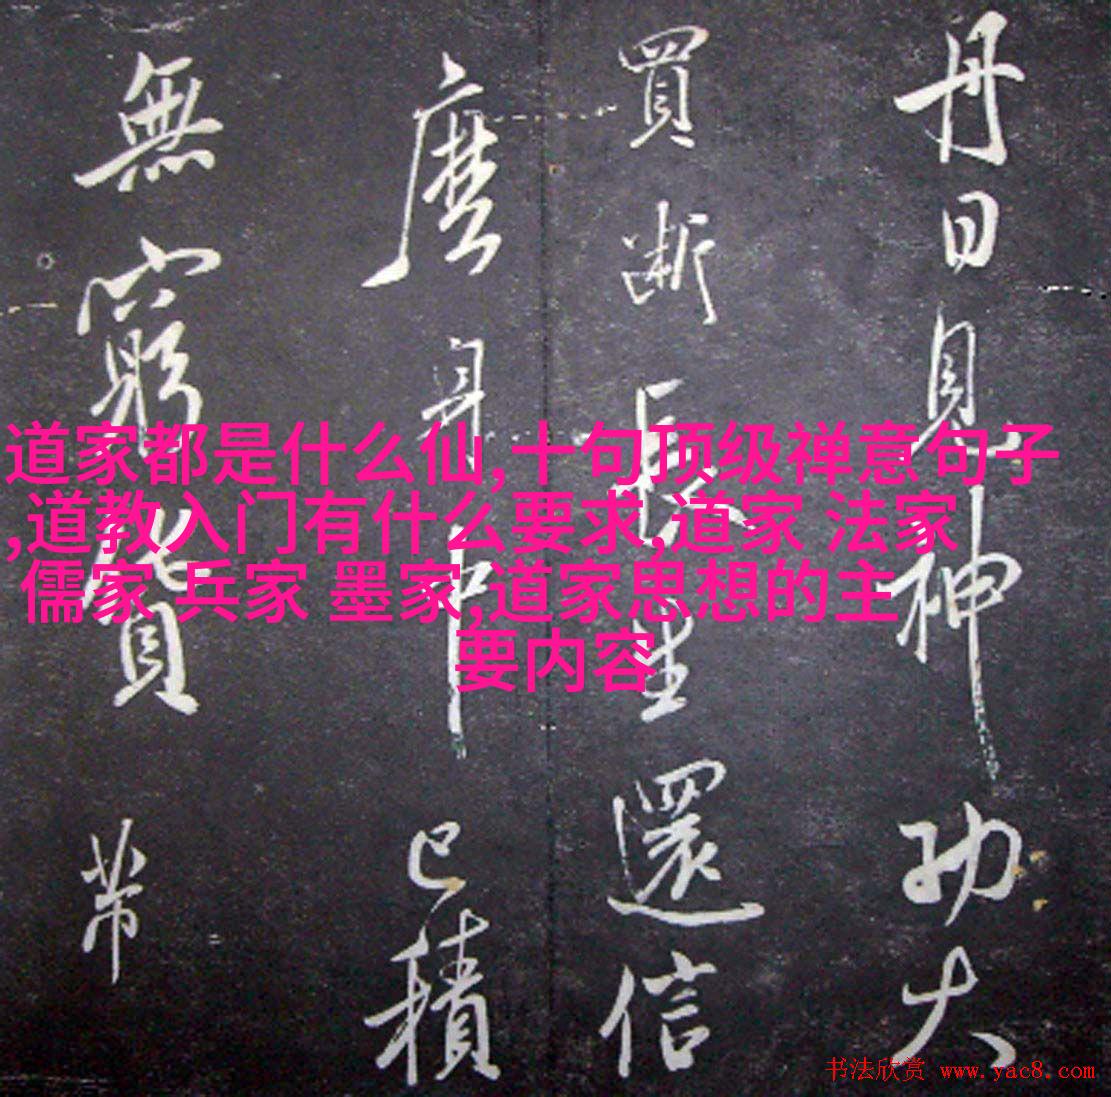 丹日見神功大
買斷長生還信
麼身中已積
無窮貨帶
道家都是什么仙,十句顶级禅意句子
,道教入门有什么要求,道家 法家
儒家 兵家 墨家,道家思想的主
要内容
书法欣赏 www.yac8.com